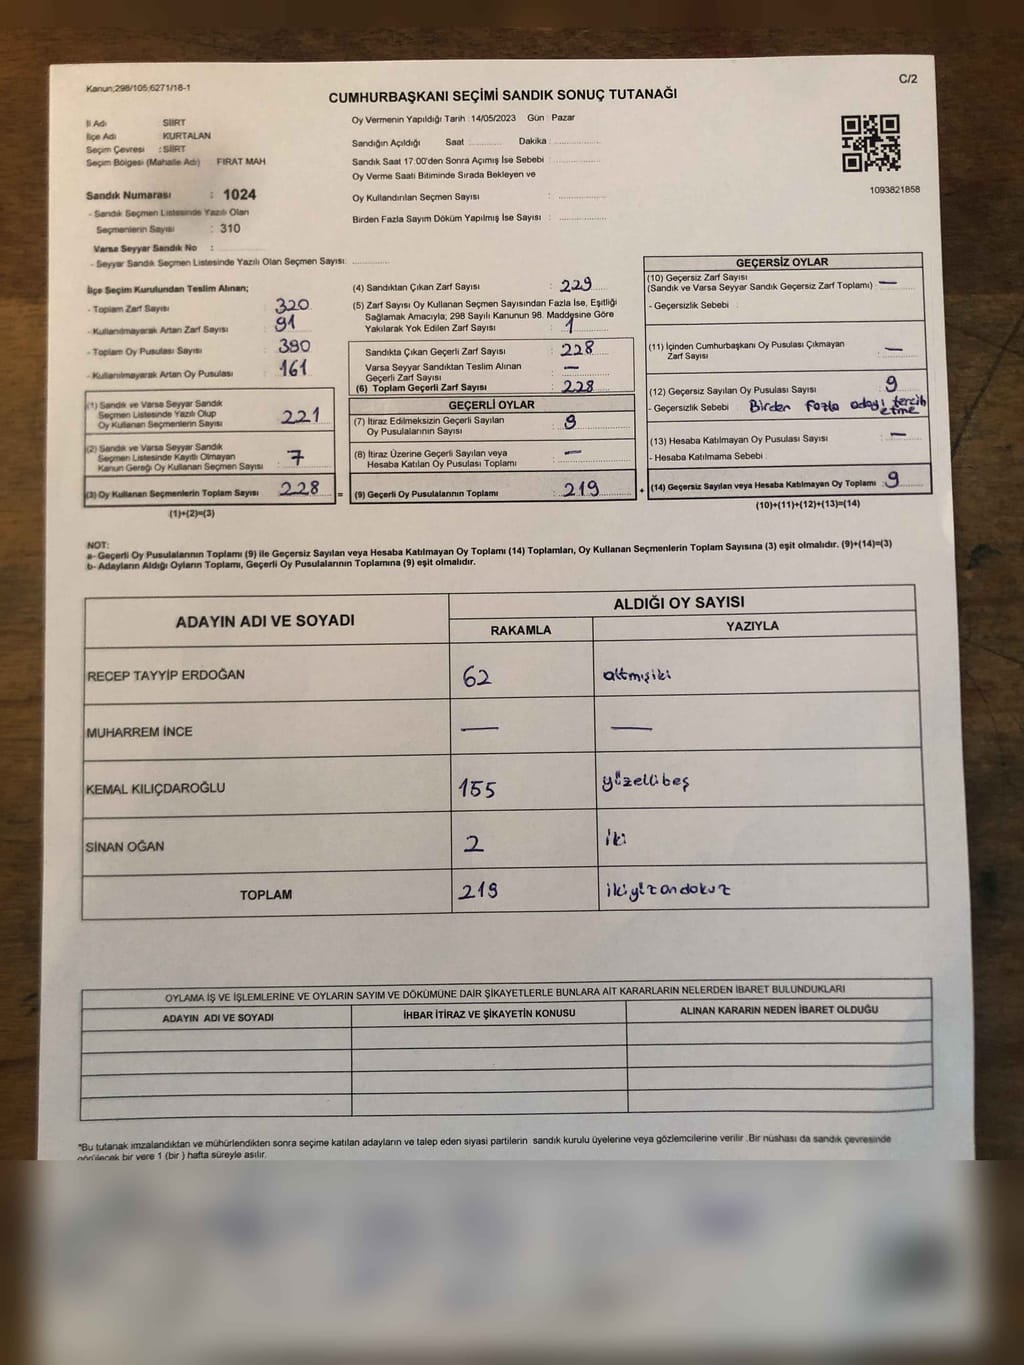 Kanun;298/105;6271/18-1
C/2
CUMHURBAŞKANI SEÇİMİ SANDIK SONUÇ TUTANAĞI
İl Adı SİİRT
İlçe Adı KURTALAN
Seçim Çevresi : SİİRT
Seçim Bölgesi (Mahalle Adı) FIRAT MAH
Sandık Numarası : 1024
- Sandık Seçmen Listesinde Yazılı Olan
Seçmenlerin Sayısı : 310
Varsa Seyyar Sandık No :
- Seyyar Sandık Seçmen Listesinde Yazılı Olan Seçmen Sayısı:
Oy Vermenin Yapıldığı Tarih : 14/05/2023 Gün : Pazar
Sandığın Açıldığı Saat Dakika :
Sandık Saat 17:00'den Sonra Açımış İse Sebebi :
Oy Verme Saati Bitiminde Sırada Bekleyen ve
Oy Kullandırılan Seçmen Sayısı :
Birden Fazla Sayım Döküm Yapılmış İse Sayısı :
1093821858
İlçe Seçim Kurulundan Teslim Alınan;
- Toplam Zarf Sayısı : 320
- Kullanılmayarak Artan Zarf Sayısı : 91
- Toplam Oy Pusulası Sayısı : 390
- Kullanılmayarak Artan Oy Pusulası : 161
(1) Sandık ve Varsa Seyyar Sandık
Seçmen Listesinde Yazılı Olup
Oy Kullanan Seçmenlerin Sayısı : 221
(2) Sandık ve Varsa Seyyar Sandık
Seçmen Listesinde Kayıtlı Olmayan
Kanun Gereği Oy Kullanan Seçmen Sayısı : 7
(3) Oy Kullanan Seçmenlerin Toplam Sayısı : 228 =
(1)+(2)=(3)
(4) Sandıktan Çıkan Zarf Sayısı : 229
(5) Zarf Sayısı Oy Kullanan Seçmen Sayısından Fazla İse, Eşitliği
Sağlamak Amacıyla; 298 Sayılı Kanunun 98. Maddesine Göre
Yakılarak Yok Edilen Zarf Sayısı : 1
Sandıkta Çıkan Geçerli Zarf Sayısı : 228
Varsa Seyyar Sandıktan Teslim Alınan
Geçerli Zarf Sayısı : —
(6) Toplam Geçerli Zarf Sayısı : 228
GEÇERLİ OYLAR
(7) İtiraz Edilmeksizin Geçerli Sayılan
Oy Pusulalarının Sayısı : 9
(8) İtiraz Üzerine Geçerli Sayılan veya
Hesaba Katılan Oy Pusulası Toplamı : —
(9) Geçerli Oy Pusulalarının Toplamı : 219 +
GEÇERSİZ OYLAR
(10) Geçersiz Zarf Sayısı
(Sandık ve Varsa Seyyar Sandık Geçersiz Zarf Toplamı) : —
- Geçersizlik Sebebi :
(11) İçinden Cumhurbaşkanı Oy Pusulası Çıkmayan
Zarf Sayısı : —
(12) Geçersiz Sayılan Oy Pusulası Sayısı : 9
- Geçersizlik Sebebi : Birden fazla adayı tercih
etme
(13) Hesaba Katılmayan Oy Pusulası Sayısı : —
- Hesaba Katılmama Sebebi :
(14) Geçersiz Sayılan veya Hesaba Katılmayan Oy Toplamı : 9
(10)+(11)+(12)+(13)=(14)
NOT:
a- Geçerli Oy Pusulalarının Toplamı (9) ile Geçersiz Sayılan veya Hesaba Katılmayan Oy Toplamı (14) Toplamları, Oy Kullanan Seçmenlerin Toplam Sayısına (3) eşit olmalıdır. (9)+(14)=(3)
b- Adayların Aldığı Oyların Toplamı, Geçerli Oy Pusulalarının Toplamına (9) eşit olmalıdır.
ADAYIN ADI VE SOYADI ALDIĞI OY SAYISI
RAKAMLA YAZIYLA
RECEP TAYYİP ERDOĞAN 62 altmışiki
MUHARREM İNCE — —
KEMAL KILIÇDAROĞLU 155 yüzellibeş
SİNAN OĞAN 2 iki
TOPLAM 219 ikiyüzondokuz
OYLAMA İŞ VE İŞLEMLERİNE VE OYLARIN SAYIM VE DÖKÜMÜNE DAİR ŞİKAYETLERLE BUNLARA AİT KARARLARIN NELERDEN İBARET BULUNDUKLARI
ADAYIN ADI VE SOYADI İHBAR İTİRAZ VE ŞİKAYETİN KONUSU ALINAN KARARIN NEDEN İBARET OLDUĞU
*Bu tutanak imzalandıktan ve mühürlendikten sonra seçime katılan adayların ve talep eden siyasi partilerin sandık kurulu üyelerine veya gözlemcilerine verilir .Bir nüshası da sandık çevresinde
görülecek bir yere 1 (bir ) hafta süreyle asılır.